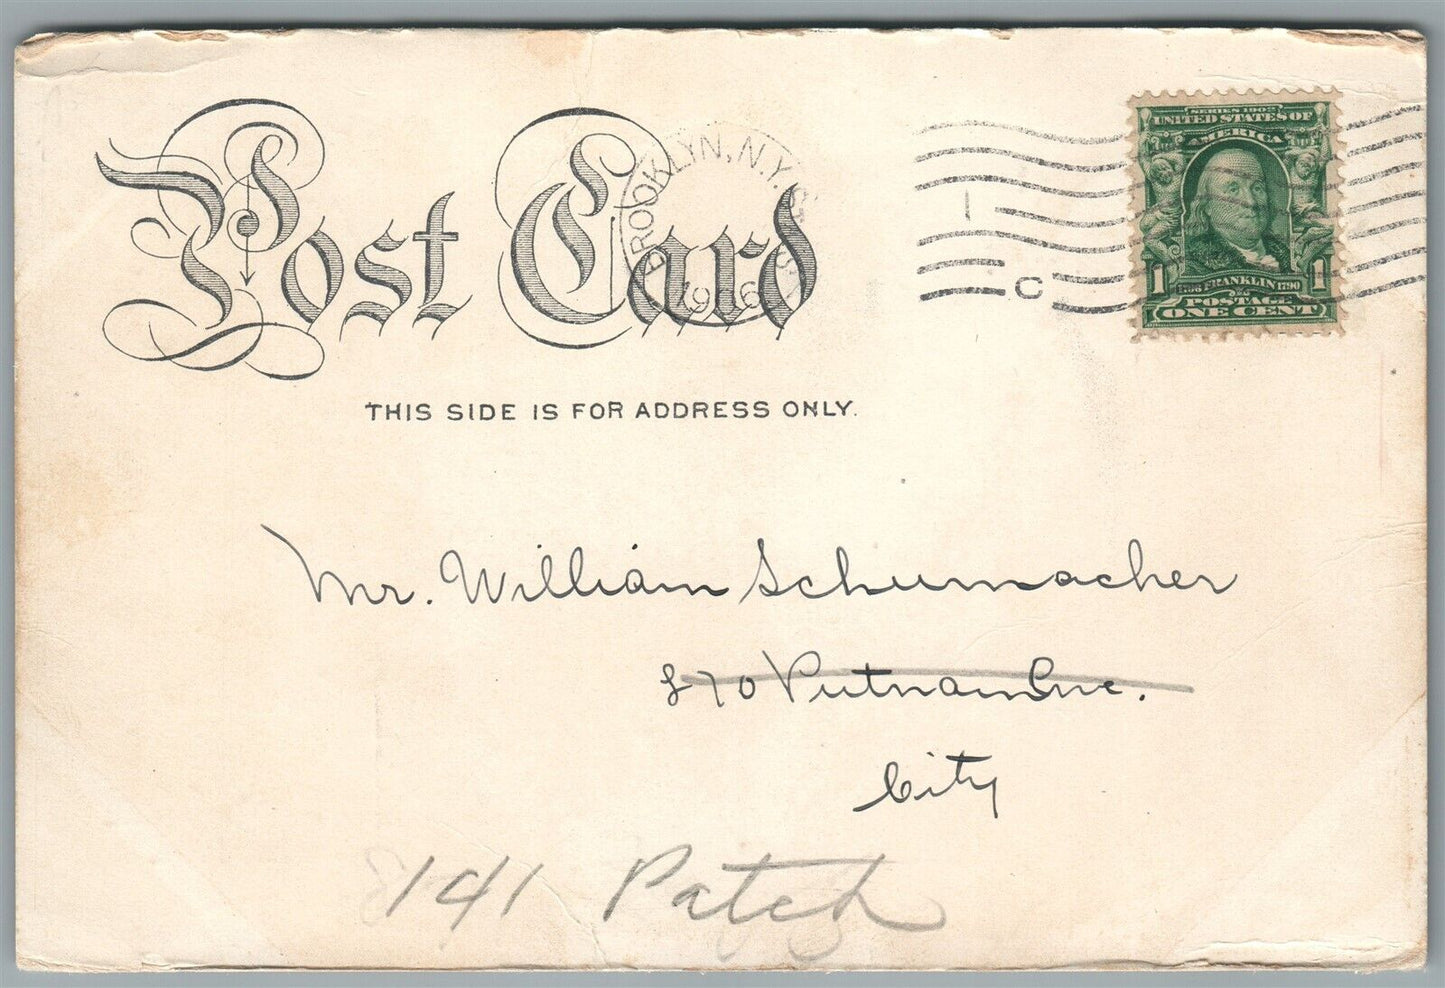 Post Card
BROOKLYN, N.Y.
1906
1
C
SERIES 1902
UNITED STATES OF
AMERICA
1 1
1706 FRANKLIN 1790
POSTAGE
ONE CENT
THIS SIDE IS FOR ADDRESS ONLY.
Mr. William Schumacher
870 Putnam Ave.
City
141 Patch